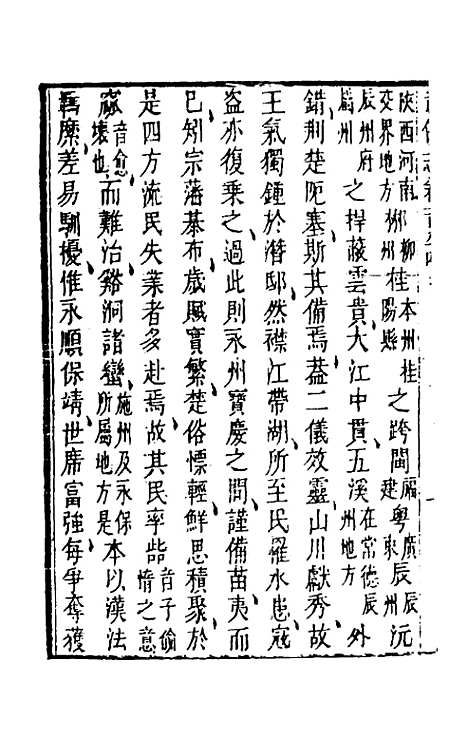 陝西河南交界地方郴柳郴州桂本州桂陽縣之跨閩福建粤廣東辰辰州沅
辰州府之捍蔽雲貴大江中貫五溪在常德辰州地方外
錯荆楚阨塞斯其備焉葢二儀效靈山川獻秀故
王氣獨鍾於潛邸然襟江帶湖所至民罹水患寇
盗亦復乗之過此則永州寶慶之間謹備苗夷而
已矧宗藩棊布歲賦實繁楚俗慓輕鮮思積聚於
是四方流民失業者多赴焉故其民率啙音子偷惰之意
窳音愈壞也而難治谿洞諸蠻施州及永保所屬地方是本以漢法
羈縻差易馴擾惟永順保靖世席富強毎爭奪獲